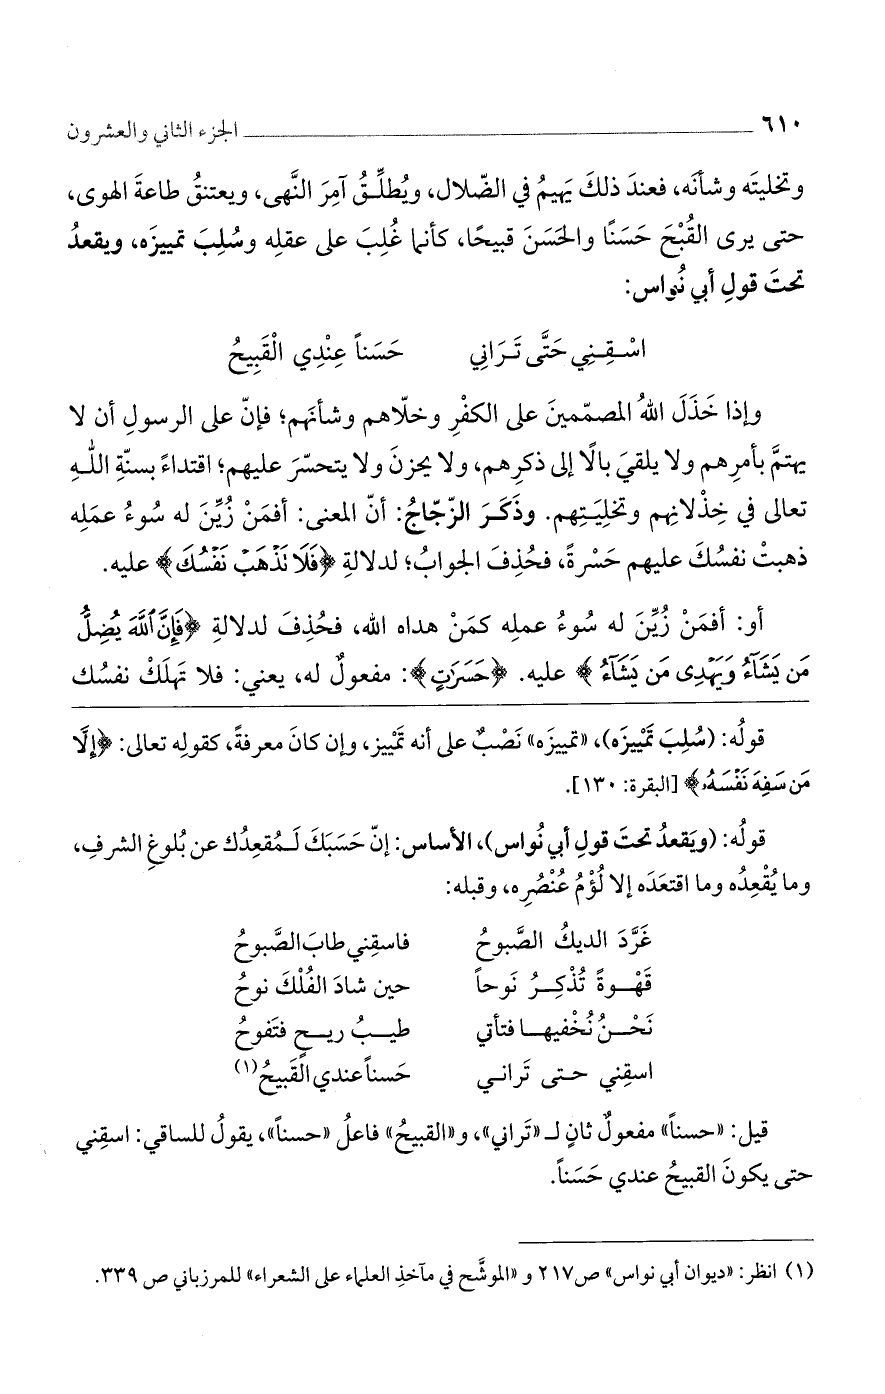 ٦١٠ الجزء الثاني والعشرون
وتخليتَه وشأنَه، فعندَ ذلكَ يَهيمُ في الضّلال، ويُطلِّقُ آمِرَ النَّهى، ويعتنقُ طاعةَ الهوى،
حتى يرى القُبْحَ حَسَنًا والحَسَنَ قبيحًا، كأنما غُلِبَ على عقلِه وسُلِبَ تمييزَه، ويقعدُ
تحتَ قولِ أبي نُواس:
اسْقِنِي حَتَّى تَرَانِي حَسَناً عِنْدِي الْقَبِيحُ
وإذا خَذَلَ اللهُ المصمّمينَ على الكفْرِ وخلّاهم وشأنَهم؛ فإنّ على الرسولِ أن لا
يهتمَّ بأمرِهم ولا يلقيَ بالًا إلى ذكرِهم، ولا يحزنَ ولا يتحسّرَ عليهم؛ اقتداءً بسنّةِ اللهِ
تعالى في خِذْلانِهم وتخلِيَتِهم. وذَكَرَ الزّجاجُ: أنّ المعنى: أفمَنْ زُيِّنَ له سُوءُ عمَلِه
ذهبتْ نفسُكَ عليهم حَسْرةً، فحُذِفَ الجوابُ؛ لدلالةِ ﴿فَلَا نَذْهَبْ نَفْسُكَ﴾ عليه.
أو: أفمَنْ زُيِّنَ له سُوءُ عملِه كمَنْ هداه الله، فحُذِفَ لدلالةِ ﴿فَإِنَّ ٱللَّهَ يُضِلُّ
مَن يَشَآءُ وَيَهْدِى مَن يَشَآءُ﴾ عليه. ﴿حَسَرَٰتٍ﴾: مفعولٌ له، يعني: فلا تَهلَكْ نفسُك
قولُه: (سُلِبَ تَمْييزَه)، «تمييزَه» نَصْبٌ على أنه تَمْييز، وإن كانَ معرفةً، كقولِه تعالى: ﴿إِلَّا
مَن سَفِهَ نَفْسَهُۥ﴾ [البقرة: ١٣٠].
قولُه: (ويَقعدُ تحتَ قولِ أبي نُواس)، الأساس: إنّ حَسَبَكَ لَـمُقعِدُك عن بُلوغِ الشرفِ،
وما يُقْعِدُه وما اقتعَدَه إلا لُؤْمُ عُنْصُرِه، وقبله:
غَرَّدَ الديكُ الصَّبوحُ فاسقِني طابَ الصَّبوحُ
قَهْوةً تُذْكِرُ نَوحاً حين شادَ الفُلْكَ نوحُ
نَحْنُ نُخْفيها فتأتي طيبُ ريحٍ فتَفوحُ
اسقِني حتى تَراني حَسناً عندي القَبيحُ(١)
قيل: «حسناً» مفعولٌ ثانٍ لـ «تَراني»، و«القبيحُ» فاعلُ «حسناً»، يقولُ للساقي: اسقِني
حتى يكونَ القبيحُ عندي حَسَناً.
(١) انظر: «ديوان أبي نواس» ص٢١٧ و «الموشَّح في مآخذِ العلماء على الشعراء» للمرزباني ص ٣٣٩.